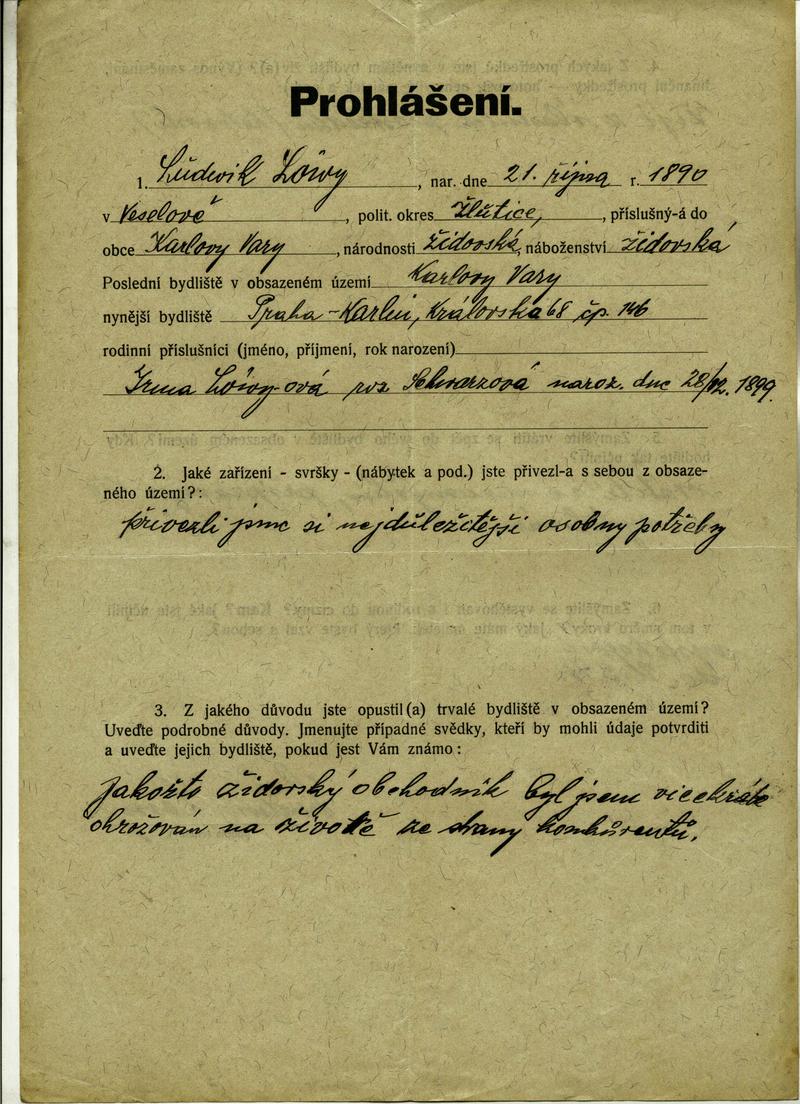 Prohlášení.
1. Ludwik Löwy, nar. dne 21. října r. 1890
v Veselově, polit. okres Žlutice, příslušný-á do
obce Karlovy Vary, národnosti židovská, náboženství židovská
Poslední bydliště v obsazeném území Karlovy Vary
nynější bydliště Praha-Karlin, Královská 68 čp. 146
rodinní příslušníci (jméno, příjmení, rok narození)
Irma Löwy-ová roz Schwarzová naroz. dne 28/12. 1899.
2. Jaké zařízení - svršky - (nábytek a pod.) jste přivezl-a s sebou z obsaze-
ného území?:
přivezli jsme si nejdůležitější osobny potřeby
3. Z jakého důvodu jste opustil(a) trvalé bydliště v obsazeném území?
Uveďte podrobné důvody. Jmenujte případné svědky, kteří by mohli údaje potvrditi
a uveďte jejich bydliště, pokud jest Vám známo:
Jakožto židovský obchodník byl jsem vicekráte
ohrožován na životě ze strany konkůrentů.